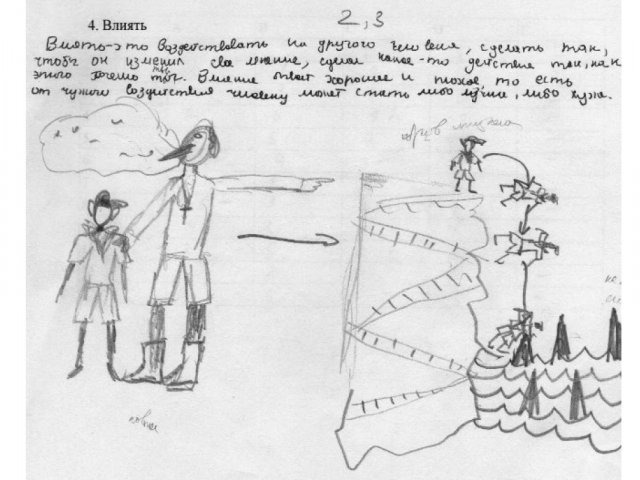 4. Влиять
2,3
Влиять-это воздействовать на другого человека, сделать так,
чтобы он изменил своё мнение, сделал какое-то действие так, как
этого хочешь ты. Влияние бывает хорошее и плохое, то есть
от чужого воздействия человеку может стать либо лучше, либо хуже.